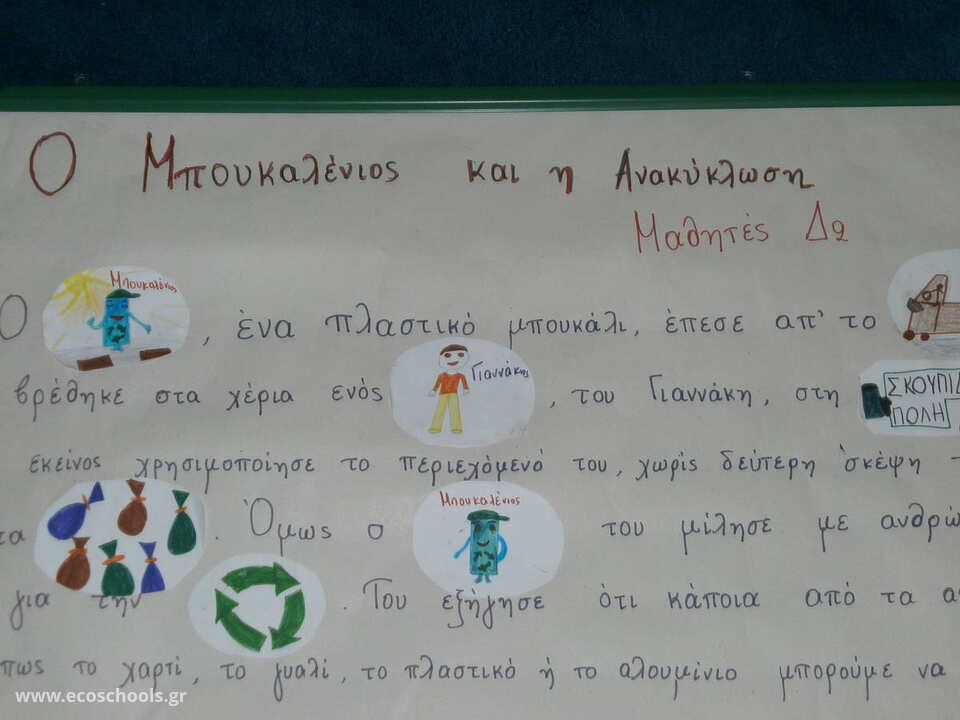 Ο Μπουκαλένιος και η Ανακύκλωση
Μαθητές Δ2
Ο Μπουκαλένιος , ένα πλαστικό μπουκάλι, έπεσε απ' το
βρέθηκε στα χέρια ενός Γιαννάκης , του Γιαννάκη, στη ΣΚΟΥΠΙΔ
ΠΟΛΗ
εκείνος χρησιμοποίησε το περιεχόμενό του, χωρίς δεύτερη σκέψη τ
τα . Όμως ο Μπουκαλένιος του μίλησε με ανθρώ
για την . Του εξήγησε ότι κάποια από τα α
πως το χαρτί, το γυαλί, το πλαστικό ή το αλουμίνιο μπορούμε να
www.ecoschools.gr